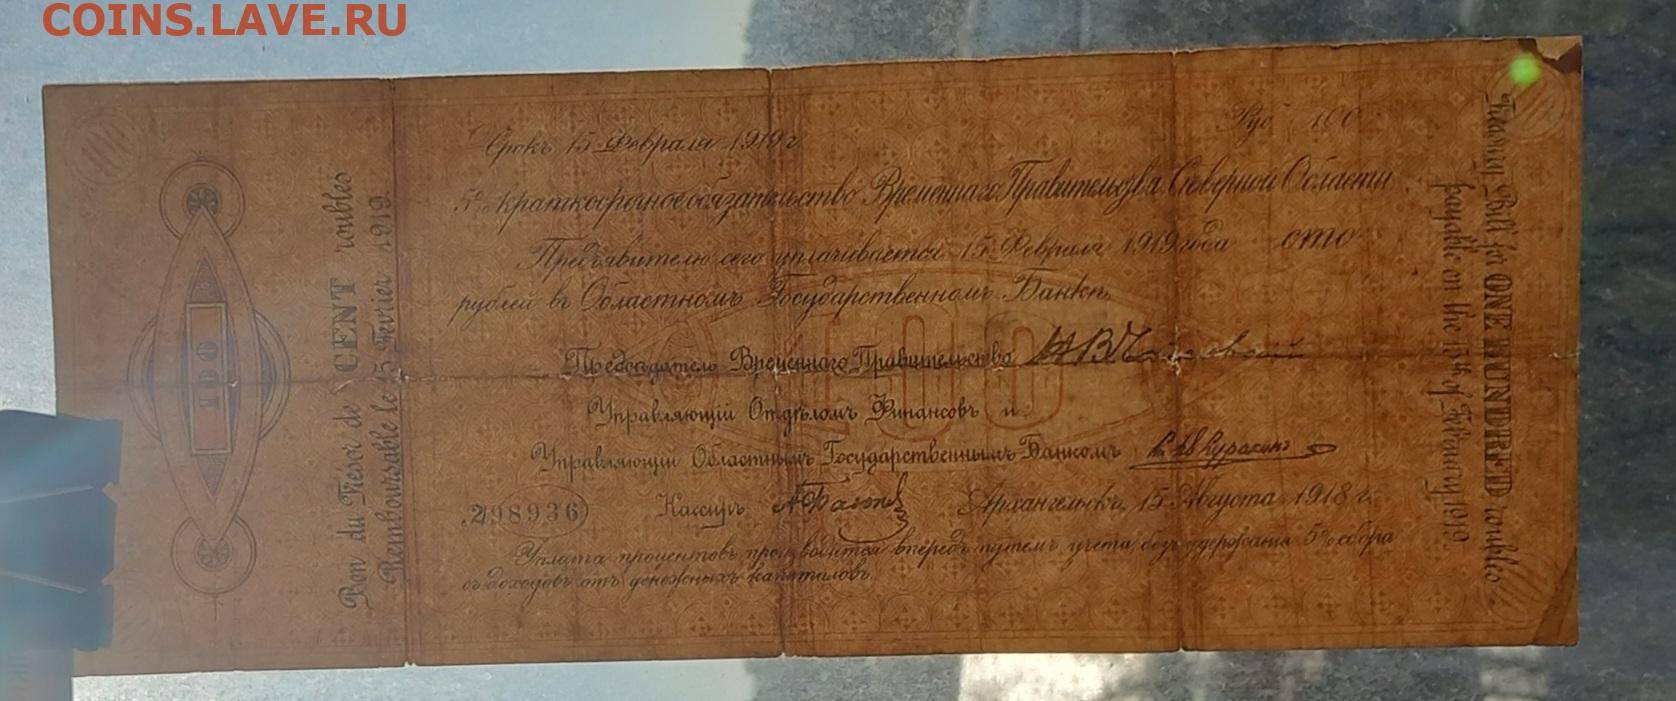 COINS.LAVE.RU
Bon du Trésor de CENT roubles
Remboursable le 15 Fevrier 1919.
100
Срокъ 15 Февраля 1919 г.
Руб 100
5% краткосрочное обязательство Временнаго Правительства Сѣверной Области
Предъявителю сего уплачивается 15 Февраля 1919 года сто
рублей въ Областномъ Государственномъ Банкѣ
100
Предсѣдатель Временнаго Правительства
Управляющій Отдѣломъ Финансовъ и
Управляющій Областнымъ Государственнымъ Банкомъ
298936
Кассиръ
Архангельскъ, 15 Августа 1918 г.
Уплата процентовъ производится впередъ путемъ учета безъ удержания 5% сбора
съ доходовъ отъ денежныхъ капиталовъ.
Treasury Bill for ONE HUNDRED roubles
payable on the 15th of February 1919.